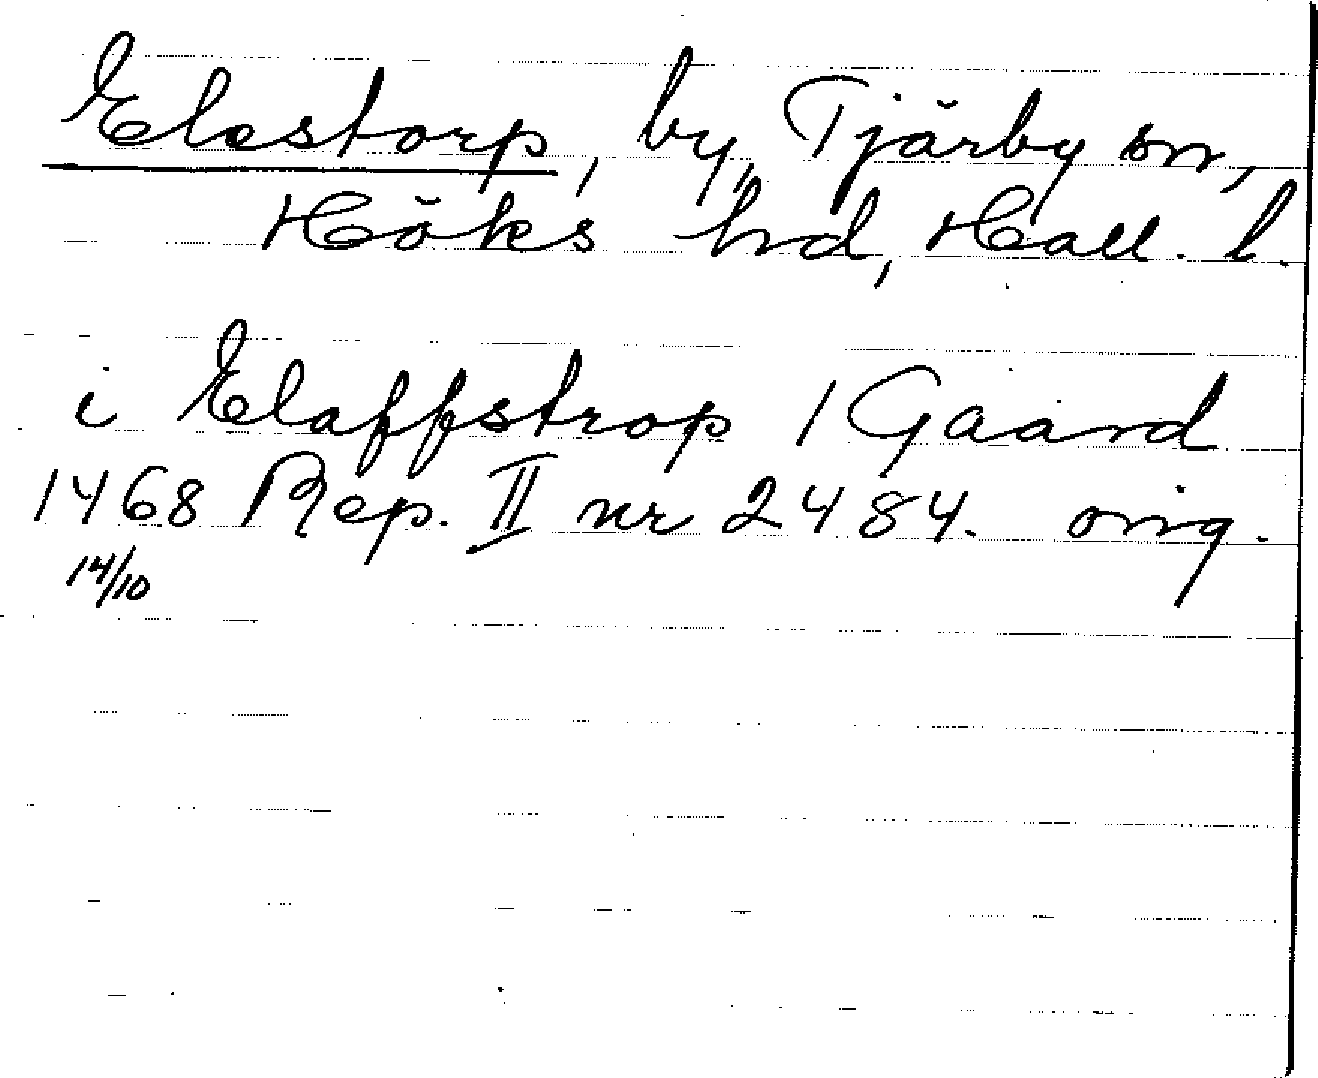 Elestorp, by, Tjärby sn,
Höks hd, Hall. l.
i Elaffstrop 1 Gaard
1468 Rep. II nr 2484. orig.
14/10